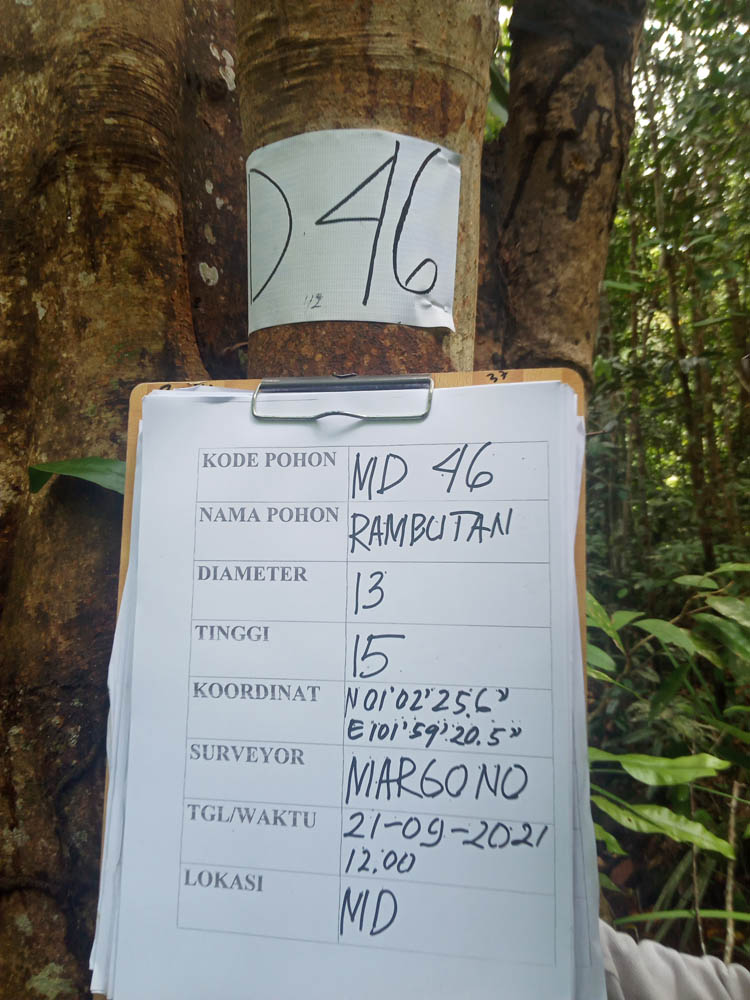 D 46
KODE POHON MD 46
NAMA POHON RAMBUTAN
DIAMETER 13
TINGGI 15
KOORDINAT N 01°02'25.6"
E 101°59'20.5"
SURVEYOR MARGONO
TGL/WAKTU 21-09-2021
12.00
LOKASI MD